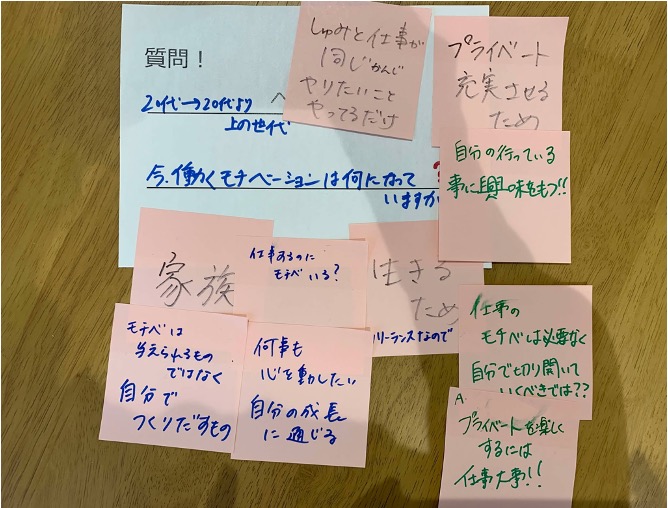 質問！
20代→20代より
上の世代
へ
今、働くモチベーションは何になって
いますか
しゅみと仕事が
同じかんじ
やりたいこと
やってるだけ
プライベート
充実させる
ため
自分の行っている
事に興味をもつ!!
家族
仕事するのに
モチベいる？
生きる
ため
リーランスなので
モチベは
与えられるもの
ではなく
自分で
つくりだすもの
何事も
心を動したい
自分の成長
に通じる
仕事の
モチベは必要なく
自分で切り開いて
いくべきでは??
A.
プライベートを楽しく
するには
仕事大事!!